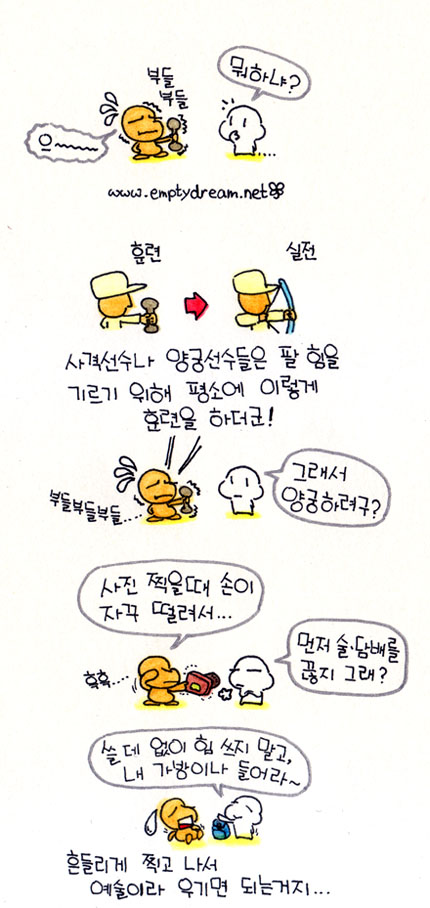 부들
부들
뭐하냐?
으~~~~
www.emptydream.net
훈련
실전
사격선수나 양궁선수들은 팔 힘을
기르기 위해 평소에 이렇게
훈련을 하더군!
부들부들부들...
그래서
양궁하려구?
사진 찍을때 손이
자꾸 떨려서...
먼저 술·담배를
끊지 그래?
흑흑...
쓸 데 없이 힘 쓰지 말고,
내 가방이나 들어라~
흔들리게 찍고 나서
예술이라 우기면 되는거지...